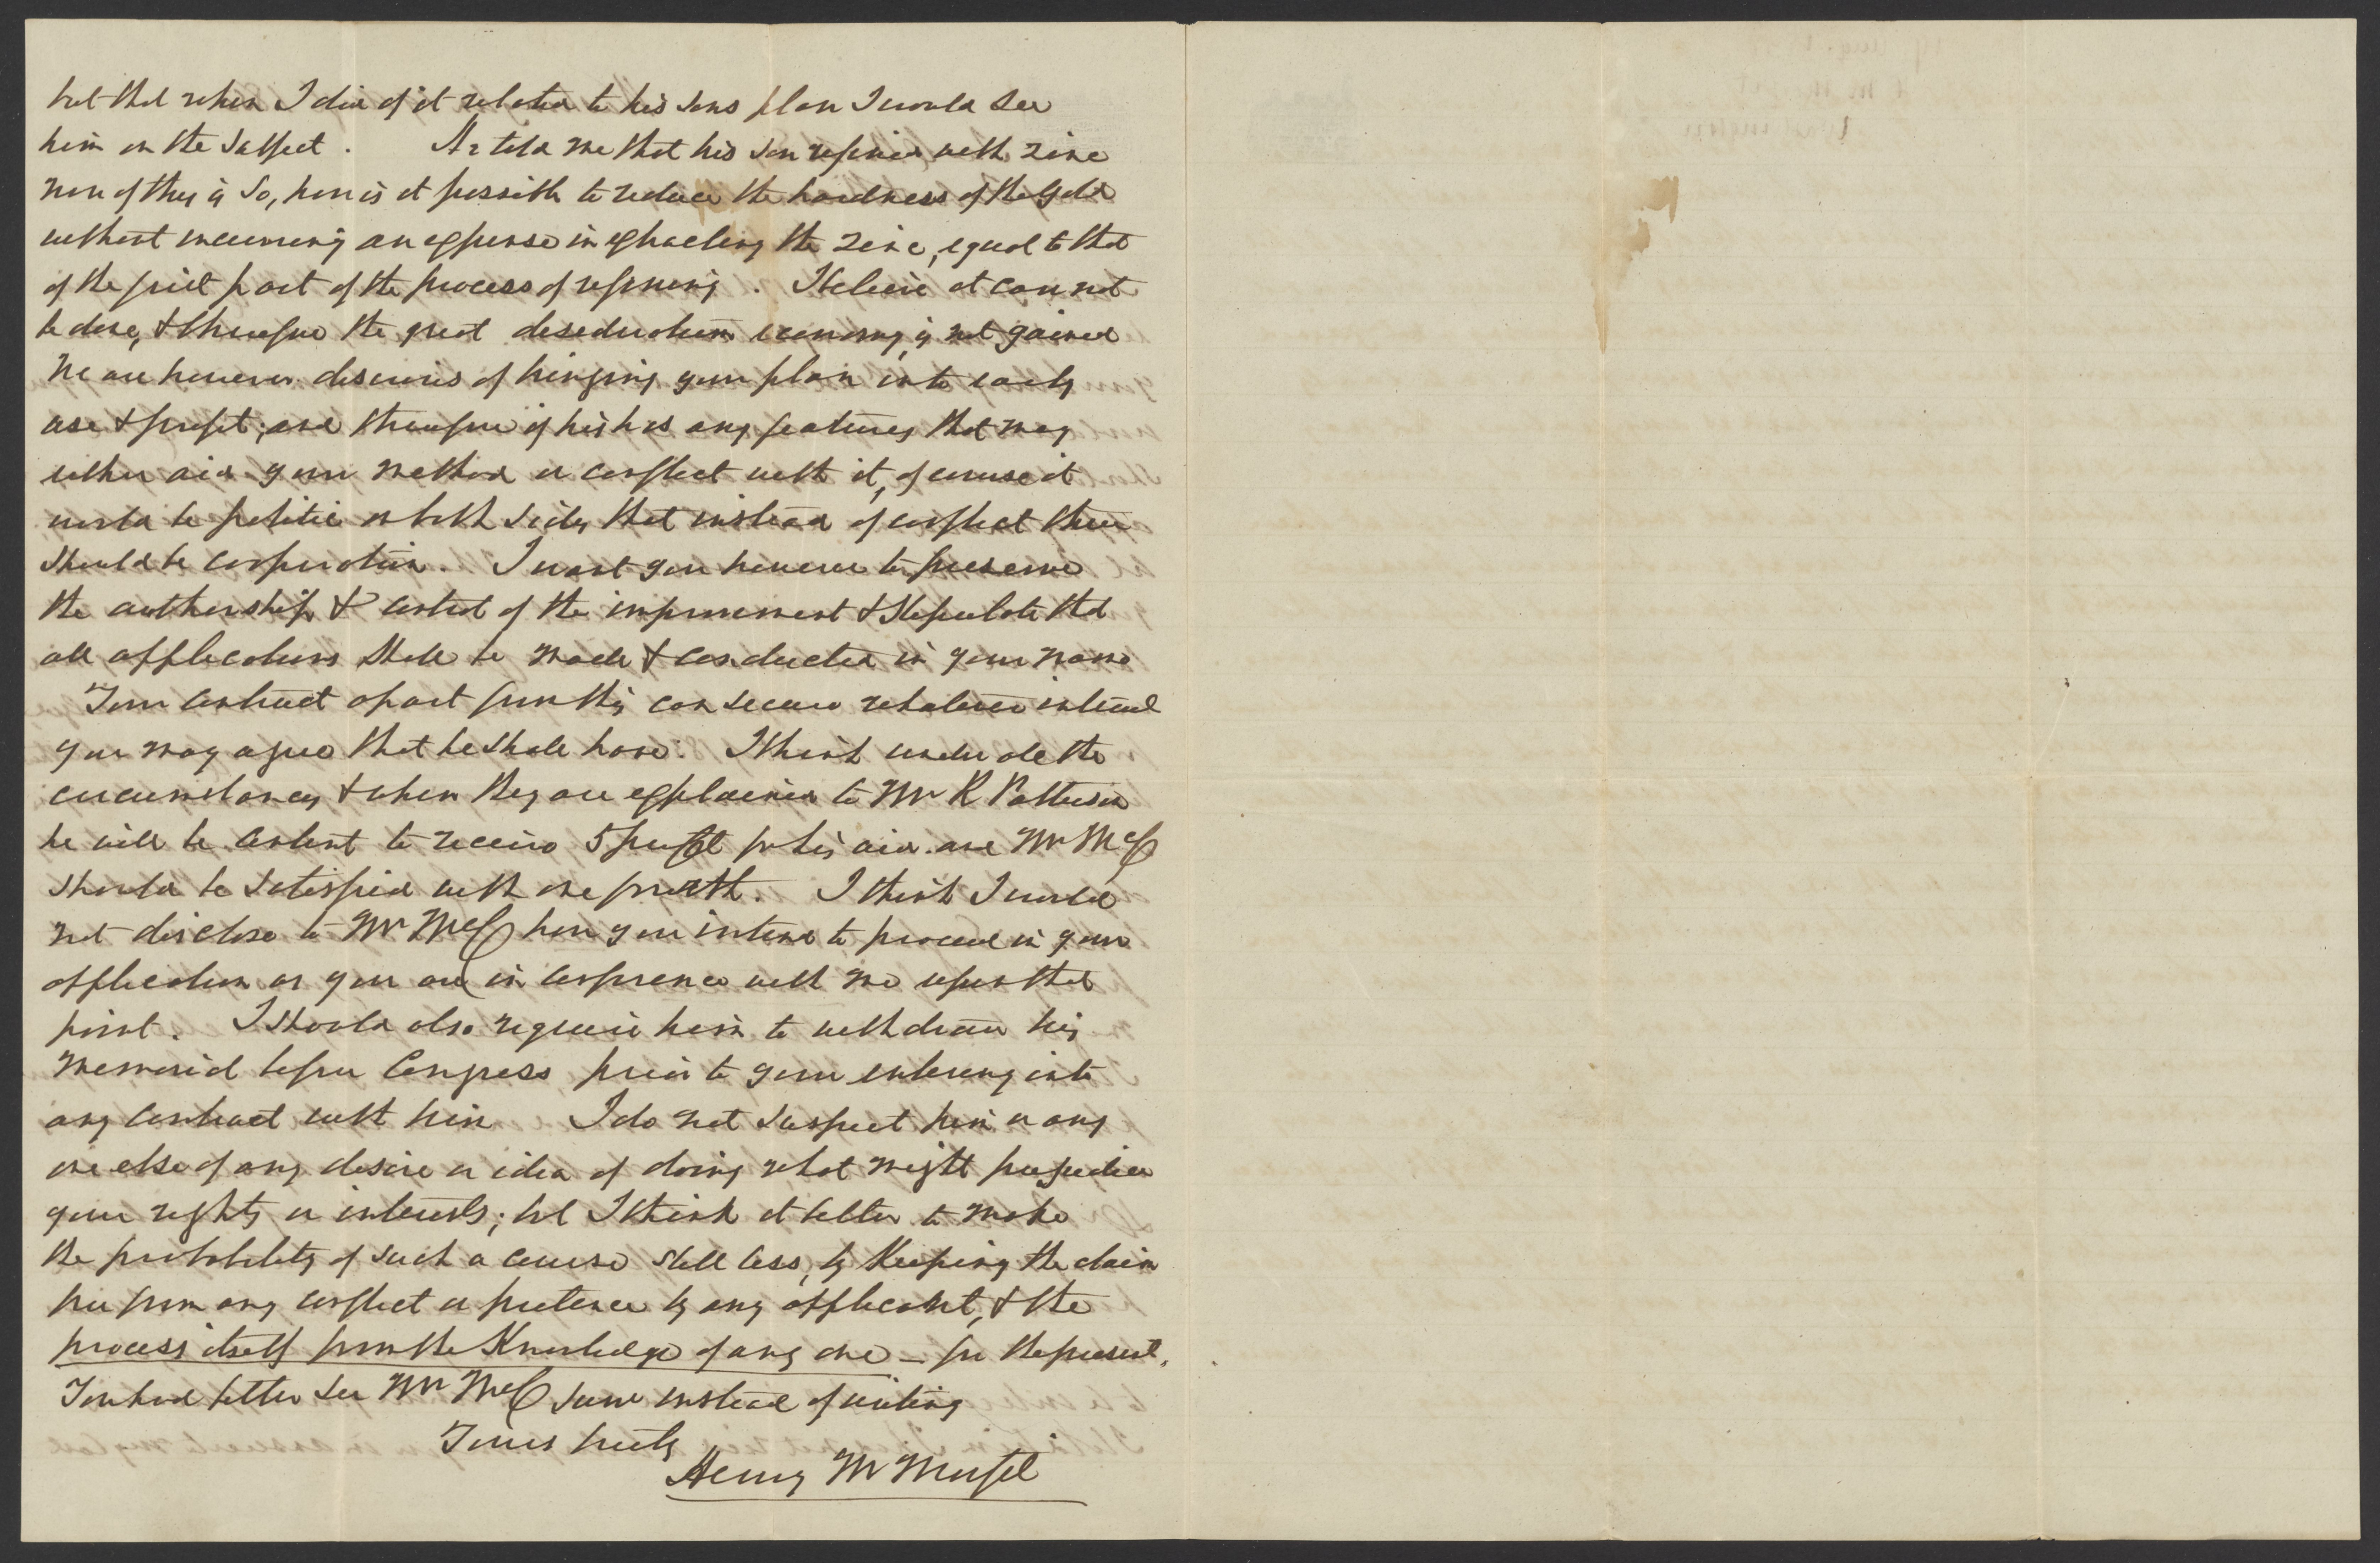 but that when I did if it related to his sons plan I would see
him on the subject. He told me that his son refined with zinc
now if this is so, how is it possible to reduce the hardness of the gold
without incurring an expense in extracting the zinc, equal to that
of the first part of the process of refining. I believe it can not
be done, & therefore the great desideratum economy, is not gained
We are however desirous of bringing your plan into early
use & profit; and therefore if his has any features that may
either aid your method or conflict with it, of course it
would be politic on both sides that instead of conflict there
should be cooperation. I want you however to preserve
the authorship & control of the improvement & stipulate that
all applications shall be made & conducted in your name
Your contract apart from this can secure whatever interest
you may agree that he shall have. I think under all the
circumstances & when they are explained to Mr R Patterson
he will be content to receive 5 per Ct for his aid. and Mr McC
should be satisfied with one fourth. I think I would
not disclose to Mr McC how you intend to proceed in your
application as you are in conference with me upon that
point. I should also require him to withdraw his
memorial before Congress prior to your entering into
any contract with him I do not suspect him or any
one else of any desire or idea of doing what might prejudice
your rights or interests; but I think it better to make
the probability of such a course still less, by keeping the claim
free from any conflict or pretence by any applicant, & the
process itself from the knowledge of any one – for the present.
You had better see Mr McC soon instead of writing
Yours truly
Henry M